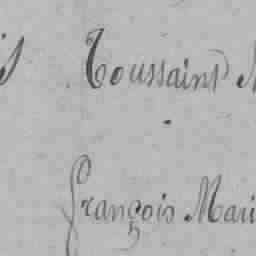 Toussaint
François Mari